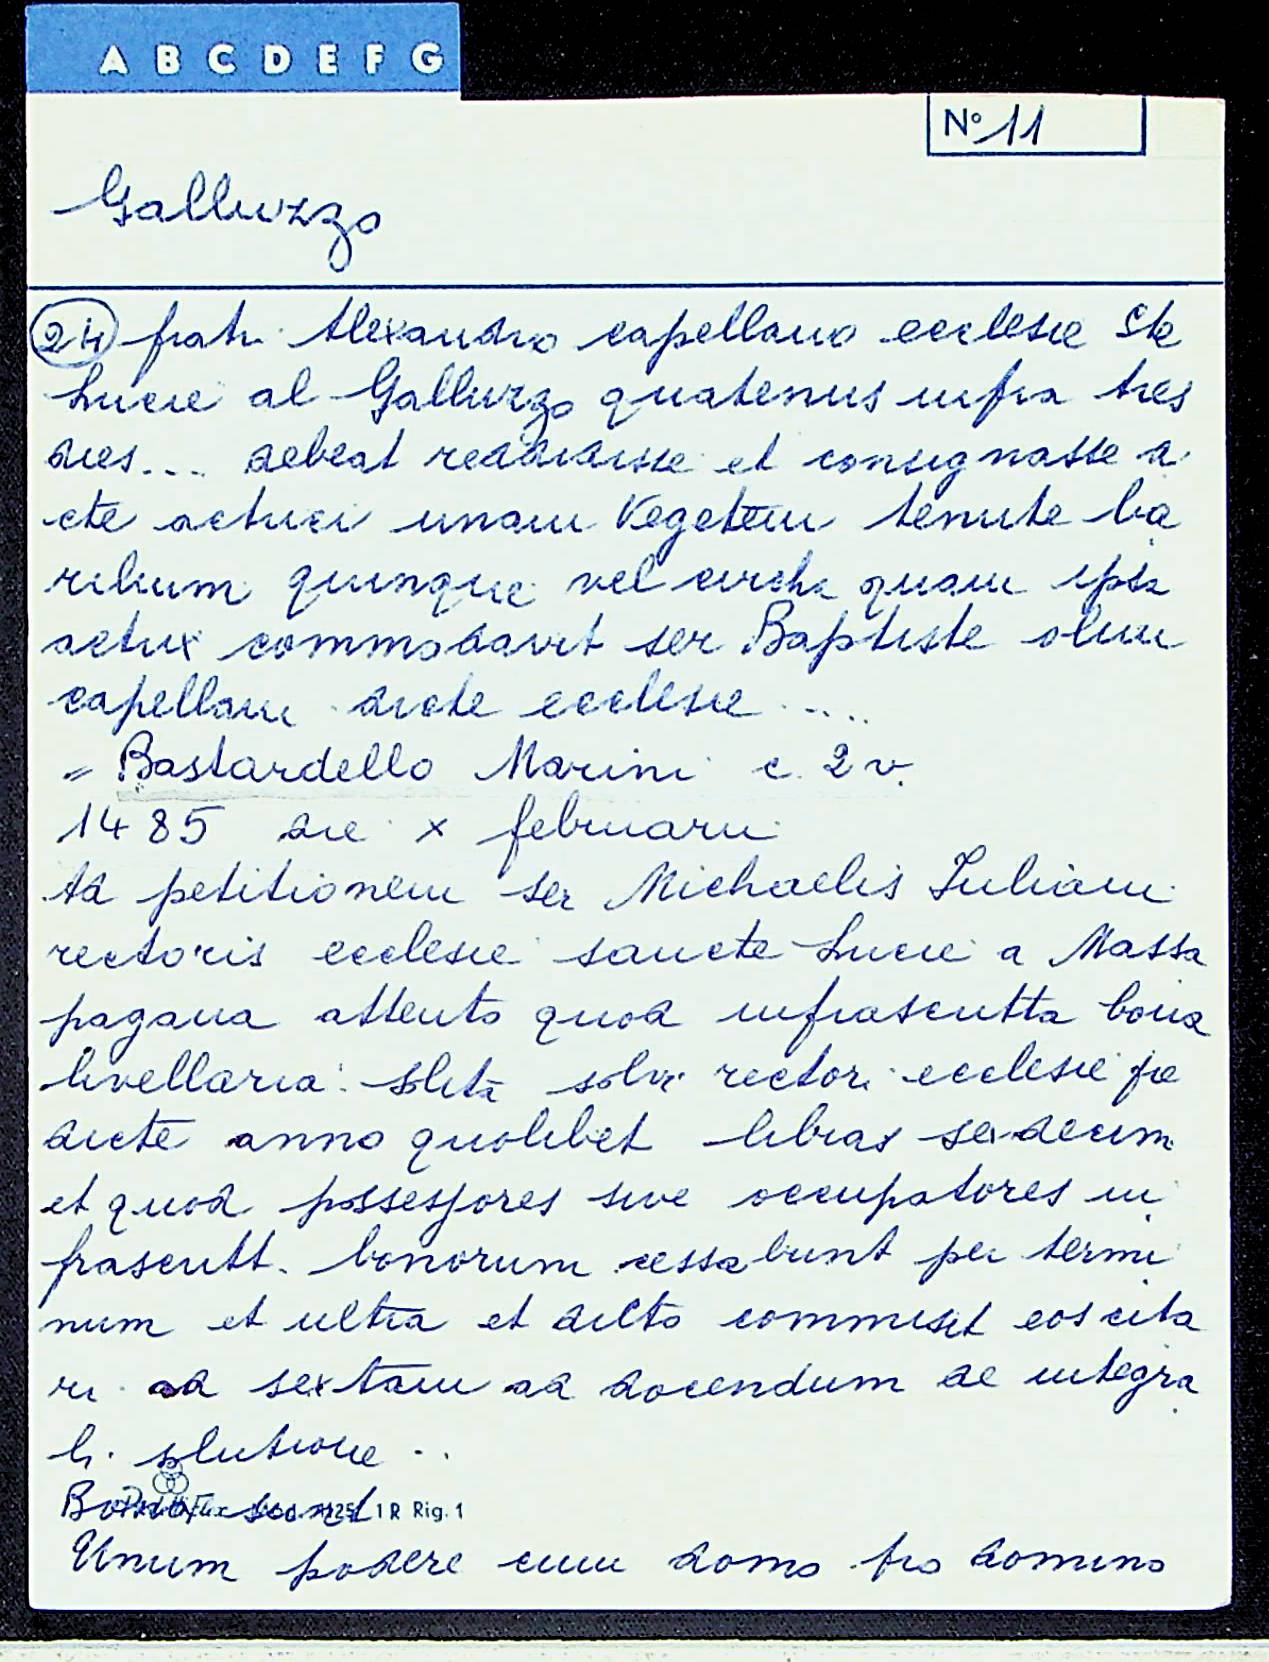 A B C D E F G
N° 11
Galluzzo
24 fratri Alexandro capellano ecclesie Ste
Lucie al Galluzzo quatenus infra tres
dies... debeat reddidisse et consignasse di
cte actrici unam Vegetem tenute ba
rilium quinque vel circha quam ipsa
actrix commodavit ser Baptiste olim
capellani dicte ecclesie ....
= Bastardello Marini c. 2 v.
1485 die x februarii
Ad petitionem ser Michaelis Iuliani
rectoris ecclesie sancte Lucie a Massa
pagana attento quod infrascritta bona
livellaria solita solvi rectori ecclesie pre
dicte anno quolibet libras sexdecim
et quod possessores sive occupatores in
frascritt. bonorum cessabunt per termi
num et ultra et dicto commisit eos cita
ri ad sextam ad docendum de integra
li solutione ..
Bona sunt
1 R Rig. 1
Unum podere cum domo pro domino